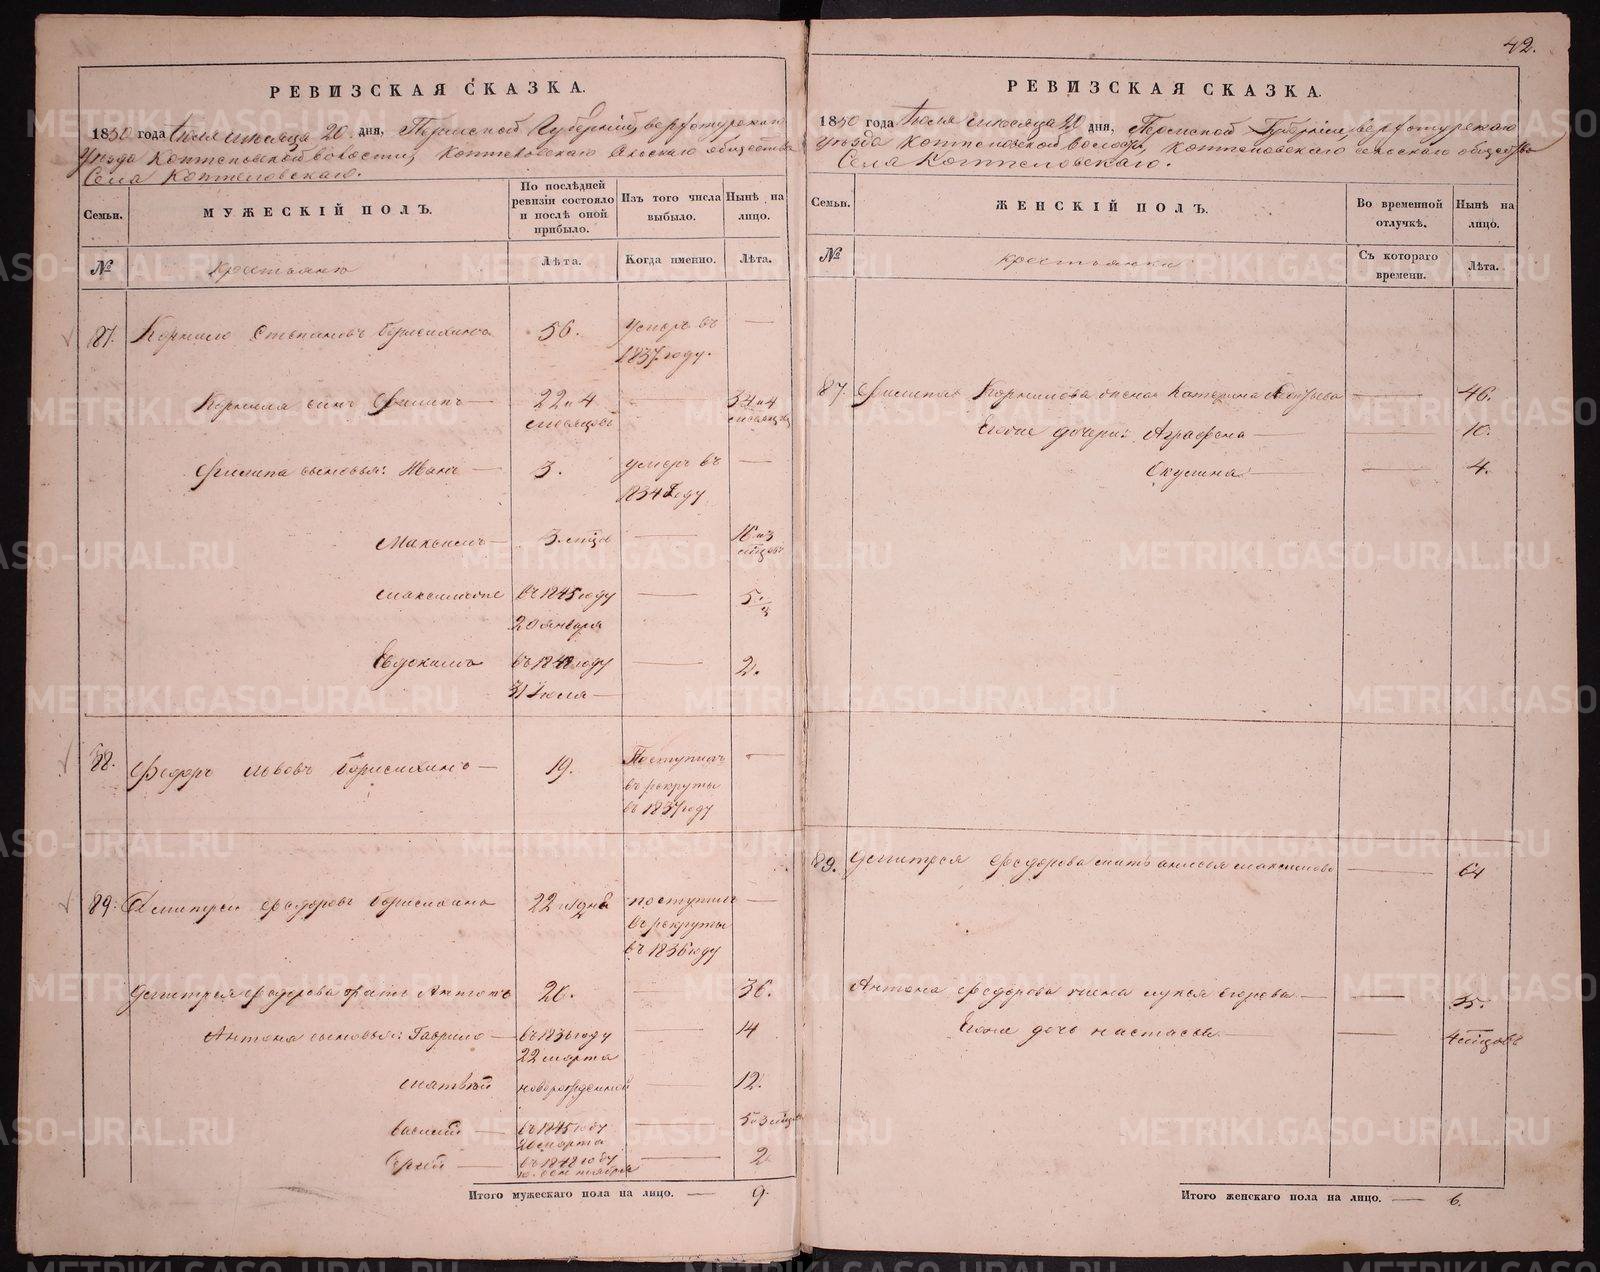 42.
РЕВИЗСКАЯ СКАЗКА.
1850 года Июля месяца 20 дня, Пермской Губернии, Верхотурскаго
Уезда Коптеловской волости, Коптеловскаго сельскаго общества
Села Коптеловскаго.
Семьи.
МУЖЕСКІЙ ПОЛЪ.
По послѣдней ревизіи состояло и послѣ оной прибыло.
Изъ того числа выбыло.
Нынѣ на лицо.
№
Крестьяне
Лѣта.
Когда именно.
Лѣта.
87. Корнило Степановъ 56. Умеръ въ —
1837 году.
Корнила сынъ Филипъ — 22 и 4 — 34 и 4
месяцовъ месяцовъ
Филипа сыновья: Иванъ — 3. умеръ въ —
1834 году
Максимъ — 3 мцов — 16 и 3
мцовъ
въ 1845 году — 5.
20 января
Евдокимъ въ 1848 году — 2.
31 Июля —
88. Федоръ Львовъ — 19. Поступилъ —
въ рекруты
въ 1837 году
89. Дмитрей Федоровъ 22 поступилъ —
въ рекруты
въ 1836 году
Дмитрея Федорова братъ Антонъ 20. — 36.
Антона сыновья: Гаврило — въ 1836 году — 14
22 марта
Матвѣй новорожденной — 12.
Василей — въ 1845 году — 5 и 3 мцов
20 марта
— въ 1848 году — 2
Итого мужескаго пола на лицо. — 9.
РЕВИЗСКАЯ СКАЗКА.
1850 года Июля месяца 20 дня, Пермской Губернии, Верхотурскаго
уезда Коптеловской волости, Коптеловскаго сельскаго общества
Села Коптеловскаго.
Семьи.
ЖЕНСКІЙ ПОЛЪ.
Во временной отлучкѣ.
Нынѣ на лицо.
№
Крестьянки
Съ котораго времени.
Лѣта.
87. Филипа Корнилова жена Катерина — 46.
Ево же дочери: Аграфена — — 10.
Окулина — — 4.
89. Дмитрея Федорова мать Анисья Максимова — 64
Антона Федорова жена Лукея Егорова — — 35.
Ево же дочь Настасья — — 4 мцовъ
Итого женскаго пола на лицо. — 6.
METRIKI.GASO-URAL.RU